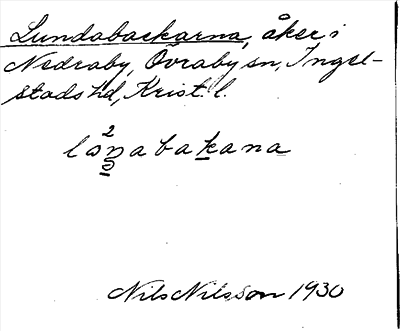 Lundabackarna, åker i
Nedraby, Övraby sn, Ingel-
stads hd, Krist. l.
Nils Nilsson 1930